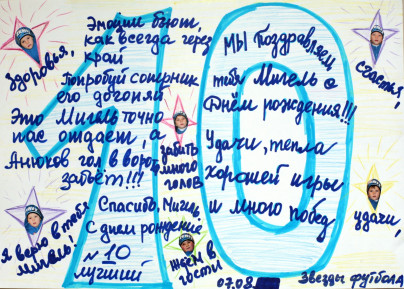 Эмоции бьют,
как всегда через
край
Попробуй соперник
его догоняй
Это Мигель точно
пас отдаёт, а
Анюков гол в ворота
забьёт!!!
Спасибо, Мигель,
С днём рождение
№ 10
лучший
Мы поздравляем
тебя Мигель с
Днём рождения!!!
Удачи, тепла
хорошей игры
и много побед
Здоровья,
счастья,
забить
много
голов
Я верю в тебя
Мигель!
ждём в
гости
удачи,
07.08
Звезды футбола
10